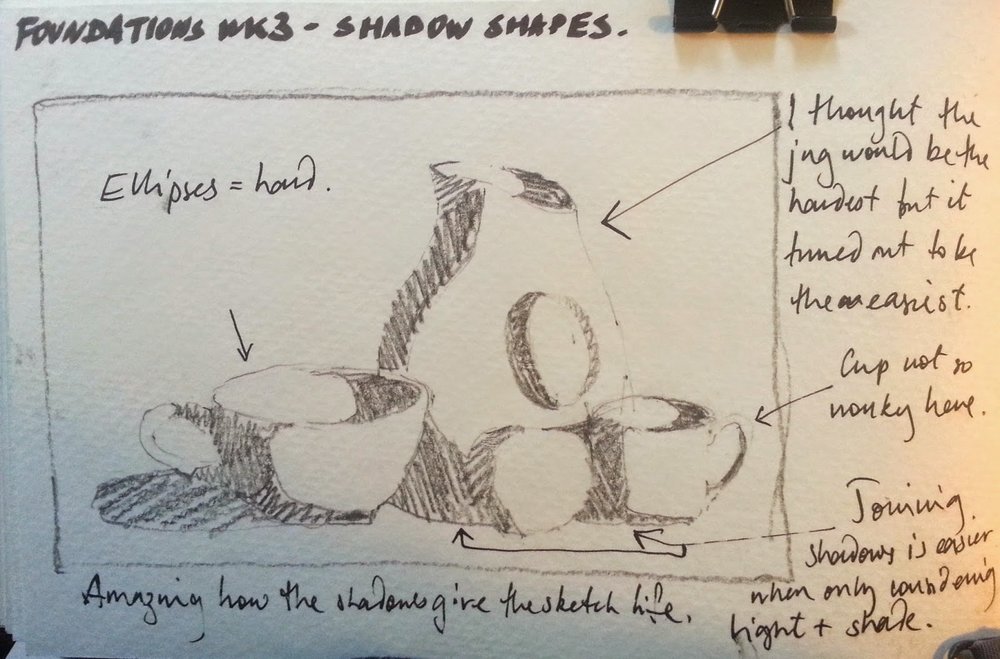 FOUNDATIONS WK3 - SHADOW SHAPES.
Ellipses = hard.
I thought the
jug would be the
hardest but it
turned out to be
the easiest.
Cup not so
wonky here.
Joining
shadows is easier
when only considering
light + shade.
Amazing how the shadows give the sketch life.